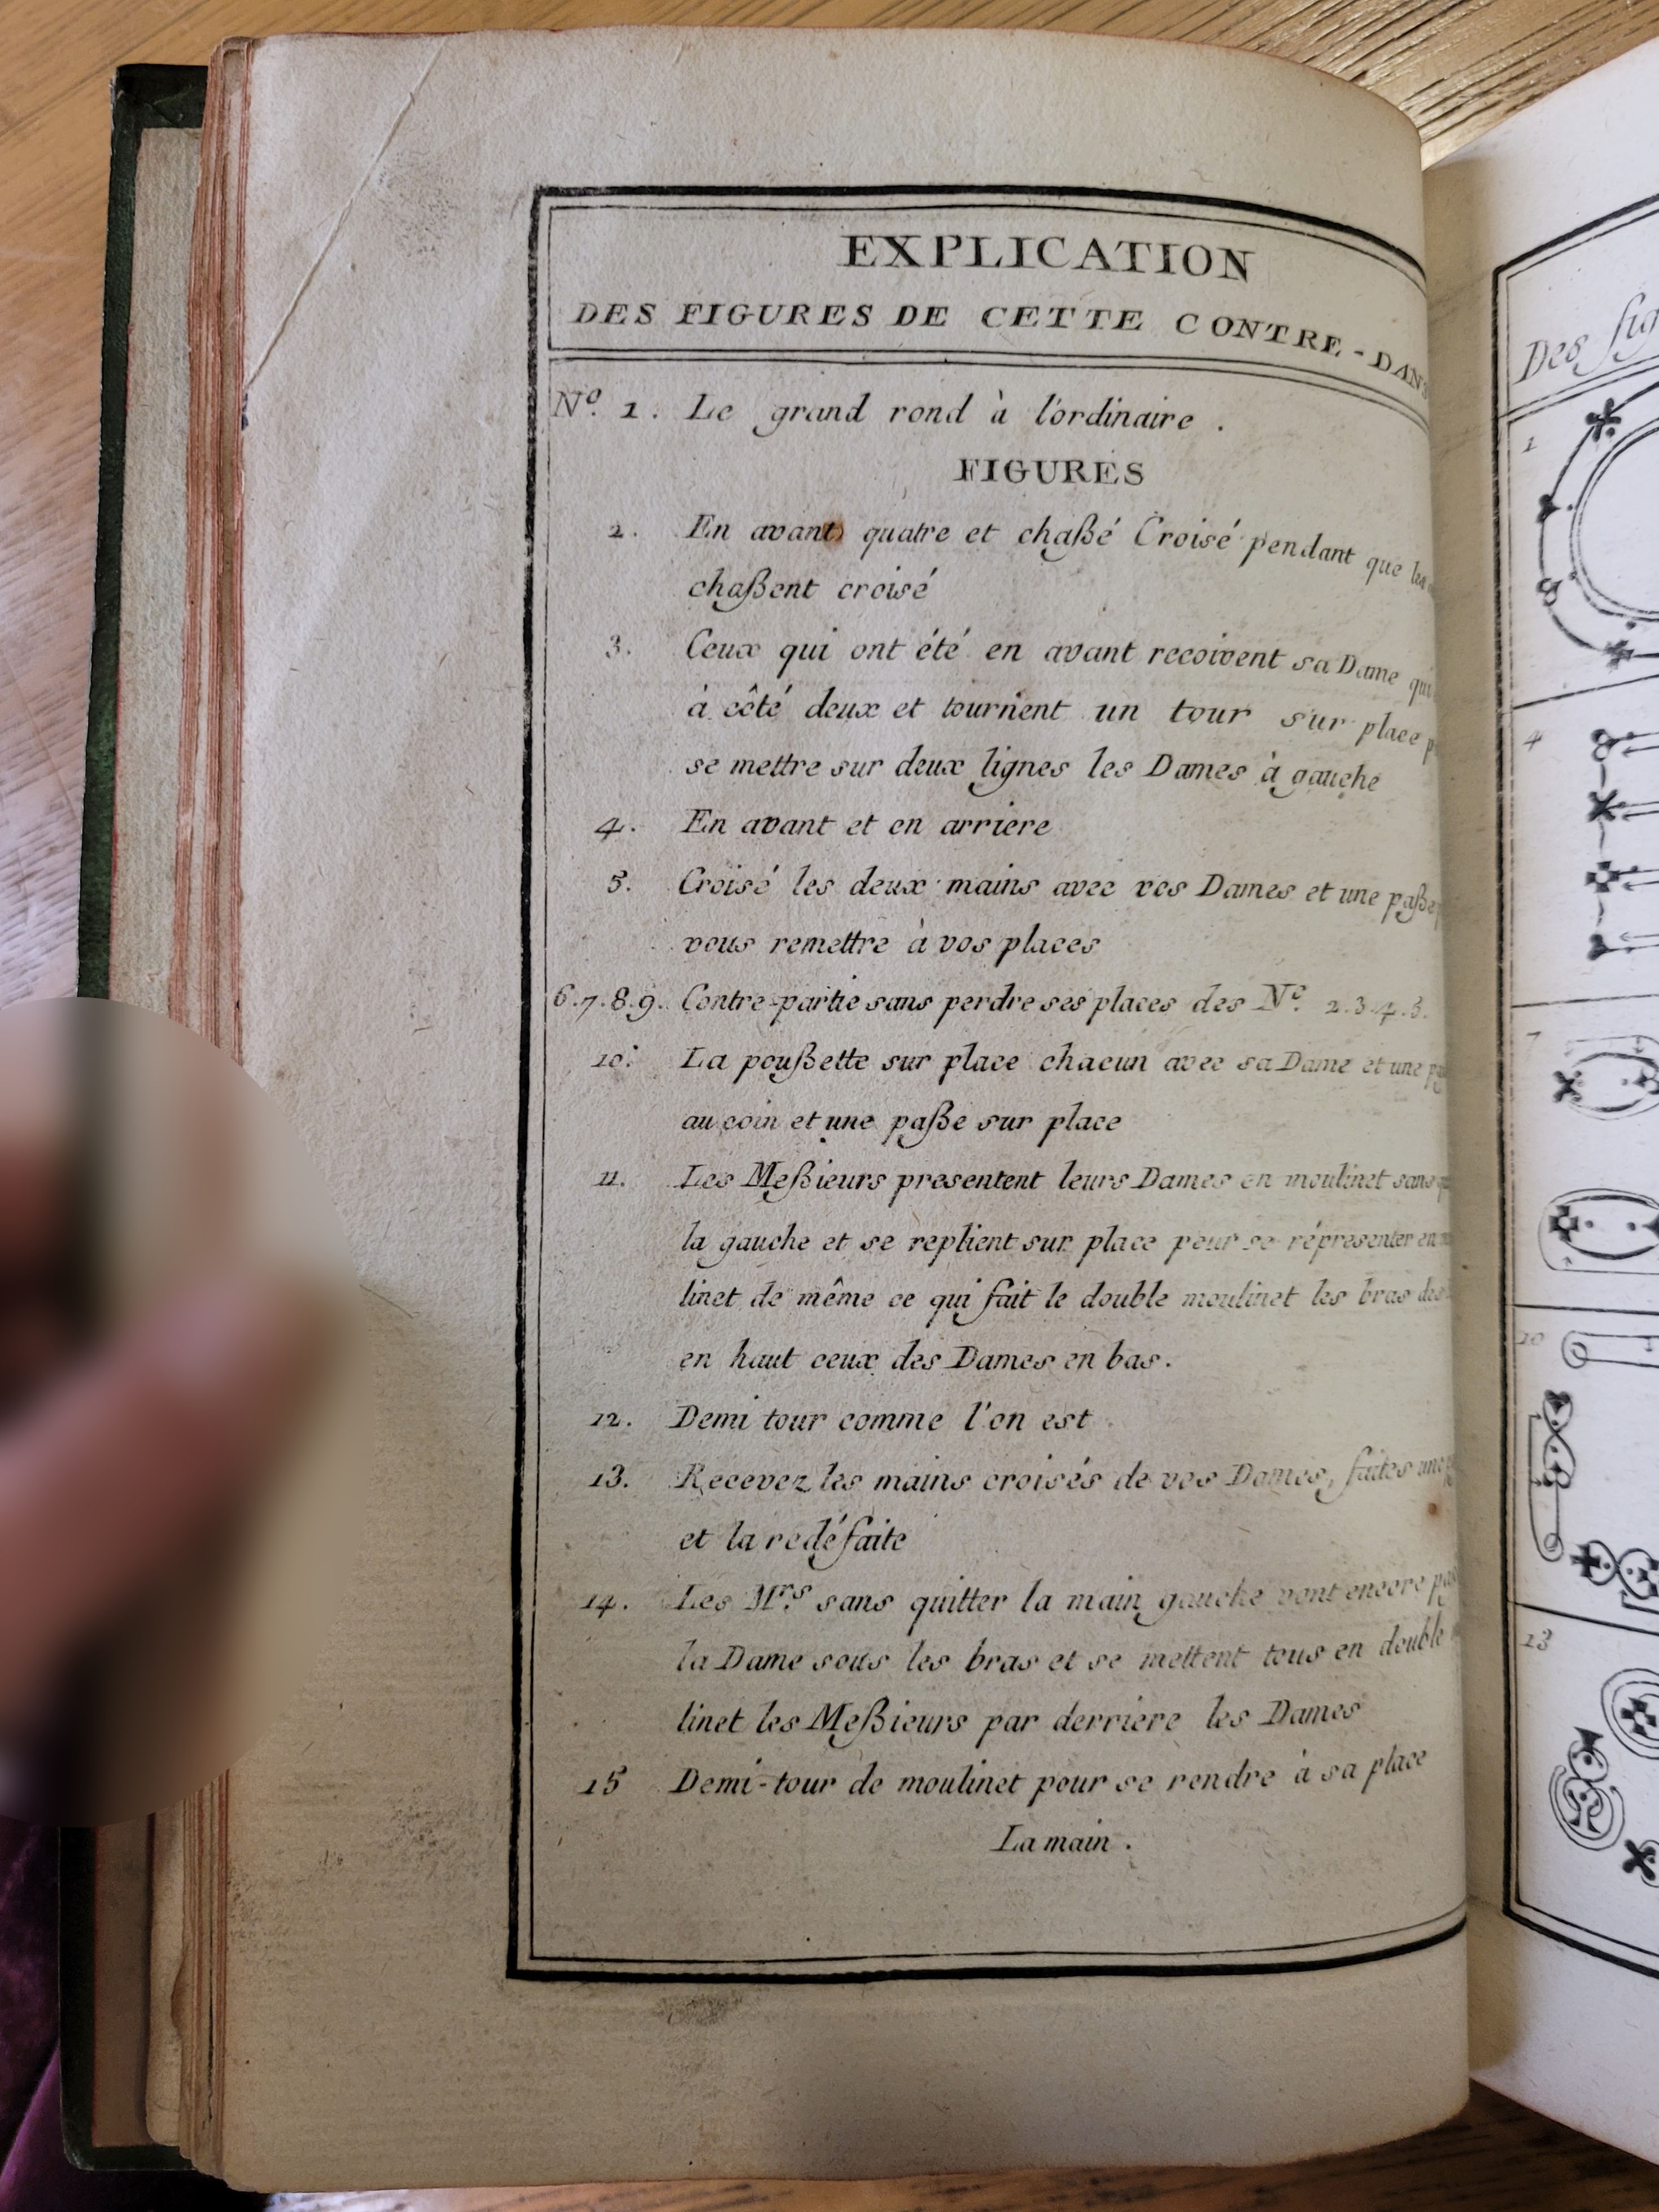 EXPLICATION
DES FIGURES DE CETTE CONTRE-DAN
Nº. 1. Le grand rond à l'ordinaire.
FIGURES
2. En avant quatre et chaßé Croisé pendant que les
chaßent croisé
3. Ceux qui ont été en avant recoivent sa Dame qui
à côté deux et tournent un tour sur place
se mettre sur deux lignes les Dames à gauche
4. En avant et en arriere
5. Croisé les deux mains avec vos Dames et une paße
vous remettre à vos places
6.7.8.9. Contre-partie sans perdre ses places des Nº. 2.3.4.5.
10. La poußette sur place chacun avec sa Dame et une
au coin et une paße sur place
11. Les Meßieurs presentent leurs Dames en moulinet sans
la gauche et se replient sur place pour se répresenter en
linet de même ce qui fait le double moulinet les bras des
en haut ceux des Dames en bas.
12. Demi tour comme l'on est
13. Recevez les mains croisés de vos Dames, faites une
et la redéfaite
14. Les Mrs. sans quitter la main gauche vont encore
la Dame sous les bras et se mettent tous en double
linet les Meßieurs par derriere les Dames
15 Demi-tour de moulinet pour se rendre à sa place
La main.
Des fig
1
4
7
10
13